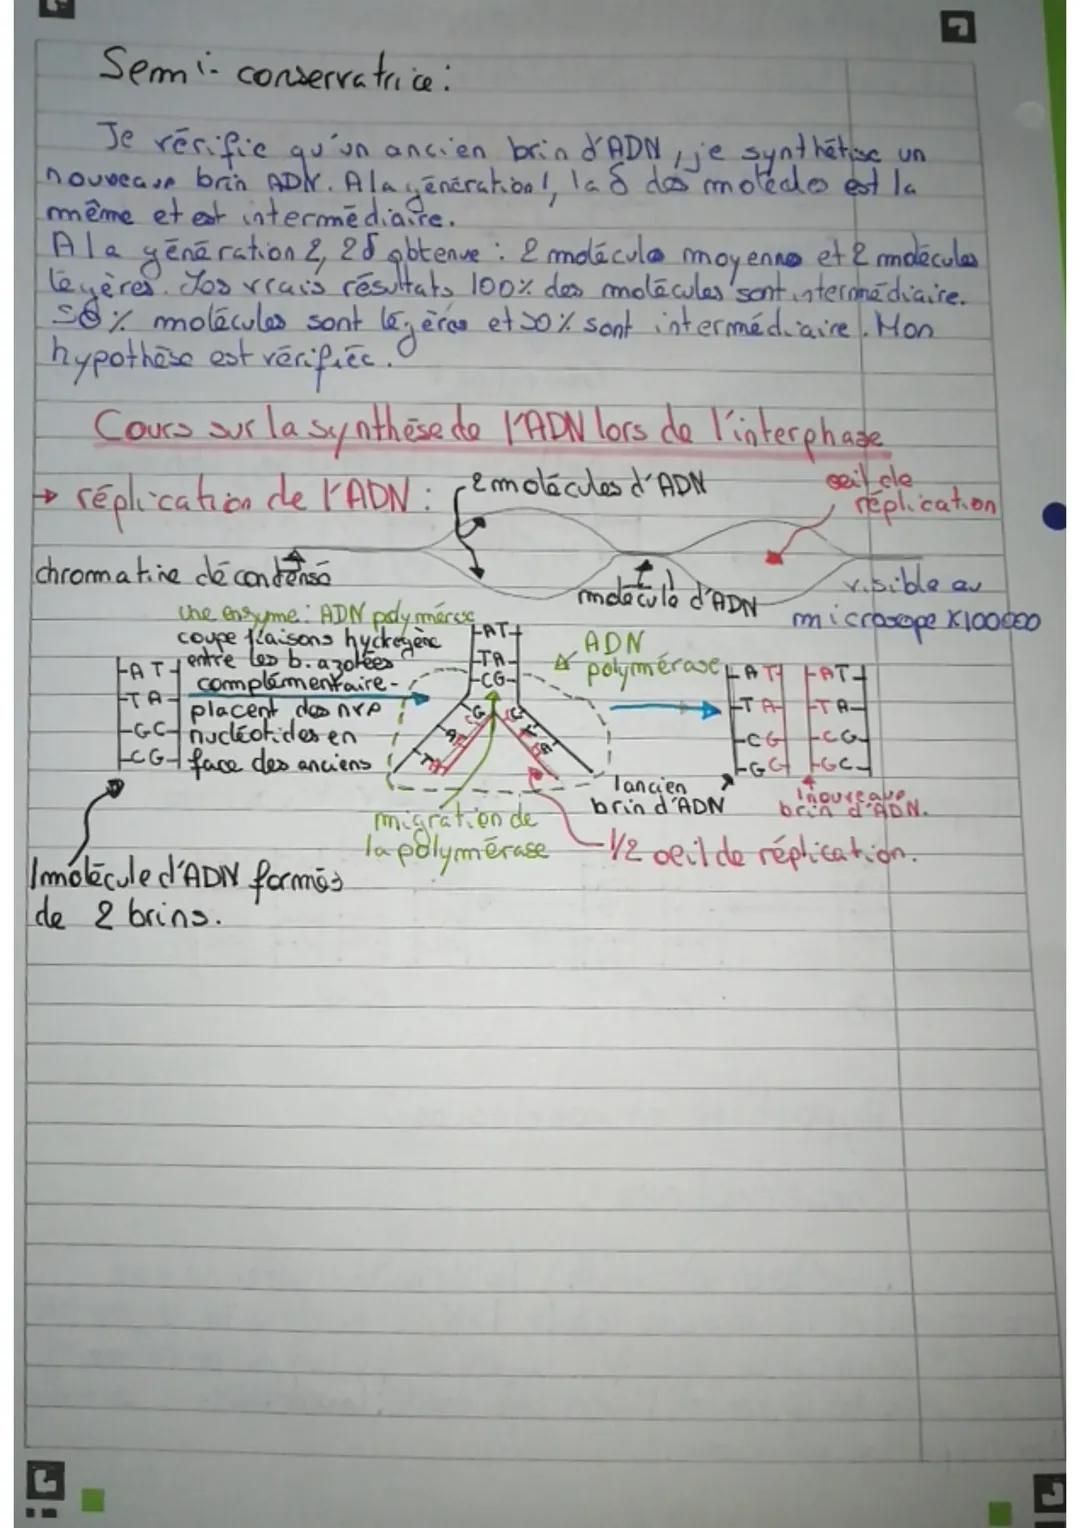 Semi-conservatrice:
Je vérifie qu'un ancien brin d'ADN, je synthétise un
nouveau brin ADN. A la génération 1, la δ des molécules est la
même et est intermédiaire.
A la génération 2, 2δ obtenue : 2 molécules moyennes et 2 molécules
légères. Les vrais résultats 100% des molécules sont intermédiaire.
50% molécules sont légères et 50% sont intermédiaire. Mon
hypothèse est vérifiée.
Cours sur la synthèse de l'ADN lors de l'interphase
→ réplication de l'ADN :
2 molécules d'ADN
oeil de
réplication
chromatine décondensé
molécule d'ADN
visible au
microscope X100000
une enzyme: ADN polymérase
coupe liaisons hydrogène
entre les b. azotées
complémentaire-
placent des
nucléotides en
face des anciens
AT
TA
GC
CG
AT
TA
CG
ADN
polymérase
AT
TA
CG
GC
AT
TA
CG
GC
1 ancien
brin d'ADN
1 nouveau
brin d'ADN.
migration de
la polymérase
1/2 oeil de réplication.
1 molécule d'ADN formés
de 2 brins.